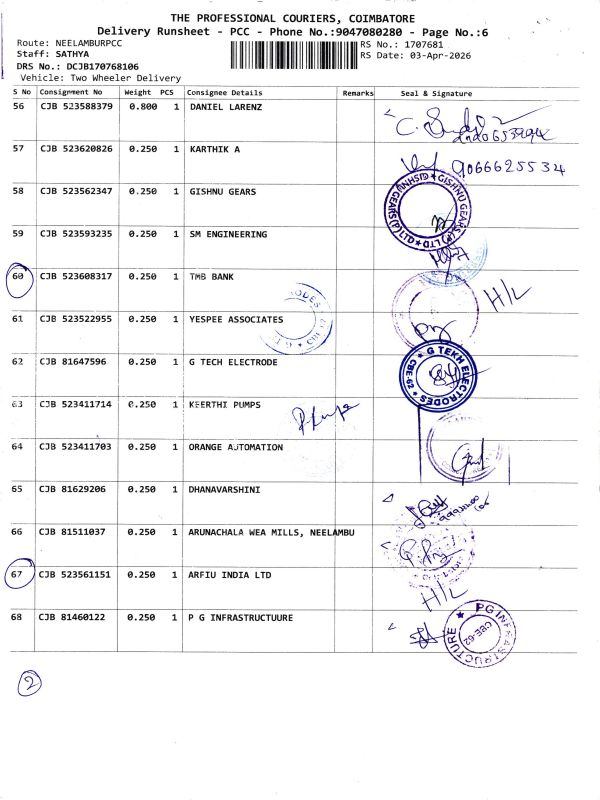 THE PROFESSIONAL COURIERS, COIMBATORE
Delivery Runsheet - PCC - Phone No.:9047080280 - Page No.:6
Route: NEELAMBURPCC
Staff: SATHYA
DRS No.: DCJB170768106
Vehicle: Two Wheeler Delivery
RS No.: 1707681
RS Date: 03-Apr-2026
S No Consignment No Weight PCS Consignee Details Remarks Seal & Signature
56 CJB 523588379 0.800 1 DANIEL LARENZ
57 CJB 523620826 0.250 1 KARTHIK A 9066625534
58 CJB 523562347 0.250 1 GISHNU GEARS
GISHNU GEARS (P) LTD
59 CJB 523593235 0.250 1 SM ENGINEERING
60 CJB 523608317 0.250 1 TMB BANK H/L
61 CJB 523522955 0.250 1 YESPEE ASSOCIATES
62 CJB 81647596 0.250 1 G TECH ELECTRODE
G TEKH ELECTRODES CBE-62
63 CJB 523411714 0.250 1 KEERTHI PUMPS
64 CJB 523411703 0.250 1 ORANGE AUTOMATION
65 CJB 81629206 0.250 1 DHANAVARSHINI
66 CJB 81511037 0.250 1 ARUNACHALA WEA MILLS, NEELAMBU
67 CJB 523561151 0.250 1 ARFIU INDIA LTD H/L
68 CJB 81460122 0.250 1 P G INFRASTRUCTUURE
PG INFRASTRUCTURE CBE-62
2